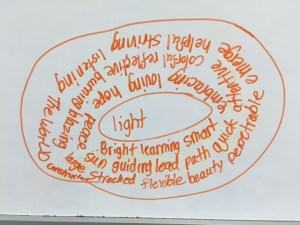 light
Bright learning smart
sun guiding lead path quick
flexible beauty
large
embracing loving hope peace
attentive colorful reflective burning blazing
emerge helpful striving listening The world